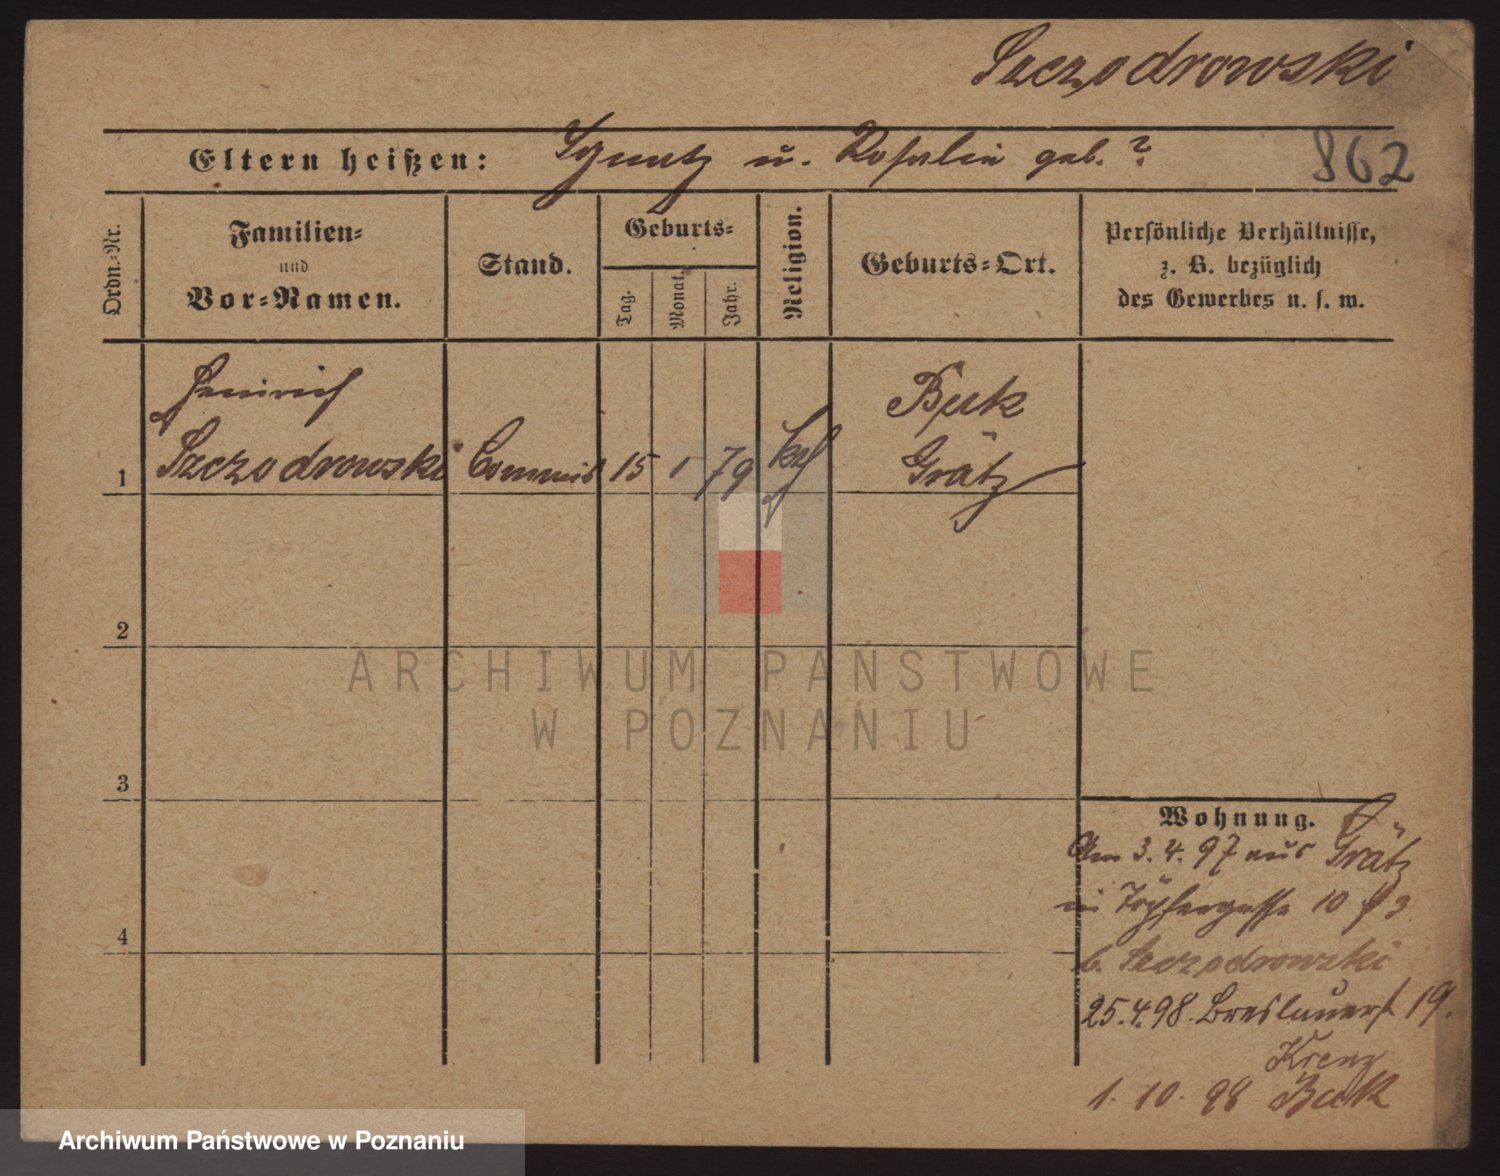 Szczodrowski
Eltern heißen: Ignatz u. Rosalie geb. ?
862
Ordn.=Nr.
Familien=
und
Vor=Namen.
Stand.
Geburts=
Tag.
Monat.
Jahr.
Religion.
Geburts=Ort.
Persönliche Verhältnisse,
z. B. bezüglich
des Gewerbes u. s. w.
Heinrich
Buk
1 Szczodrowski Commis 15 1 79 kath Grätz
2
ARCHIWUM PAŃSTWOWE
W POZNANIU
3
Wohnung.
Am 3.4.97 aus Grätz
in Töpfergasse 10
b. Szczodrowski
4
25.4.98. Breslauerst 19.
1. 10. 98 Buk
Archiwum Państwowe w Poznaniu